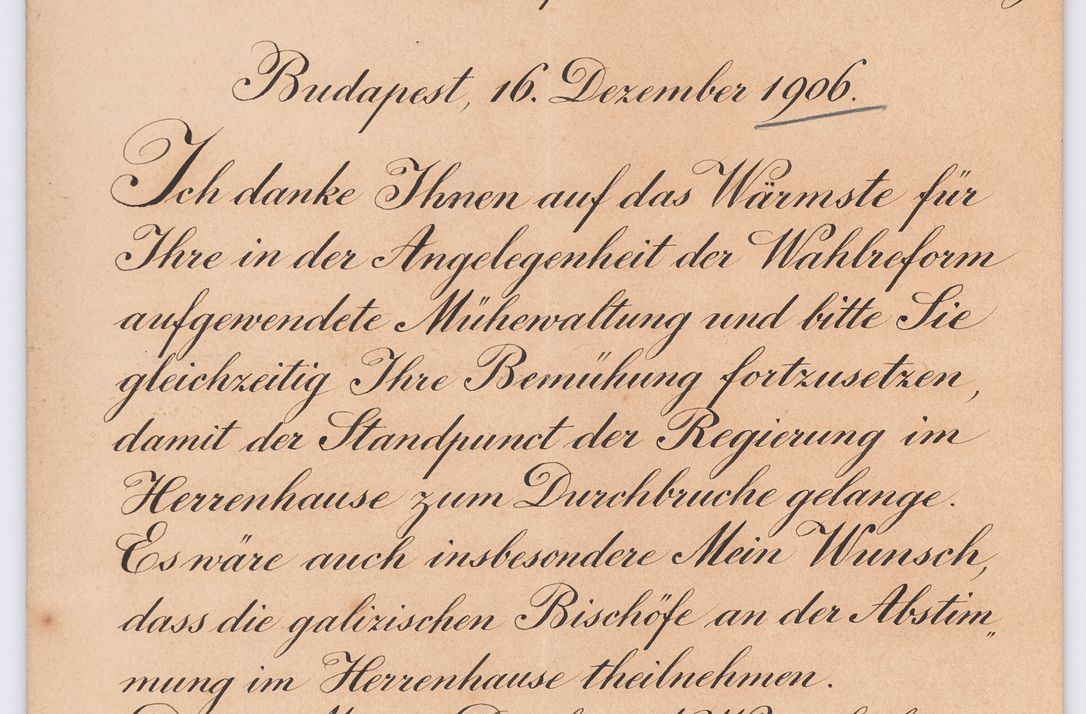 Budapest, 16. Dezember 1906.
Ich danke Ihnen auf das Wärmste für
Ihre in der Angelegenheit der Wahlreform
aufgewendete Mühewaltung und bitte Sie
gleichzeitig Ihre Bemühung fortzusetzen,
damit der Standpunct der Regierung im
Herrenhause zum Durchbruche gelange.
Es wäre auch insbesondere Mein Wunsch,
dass die galizischen Bischöfe an der Abstim„
mung im Herrenhause theilnehmen.